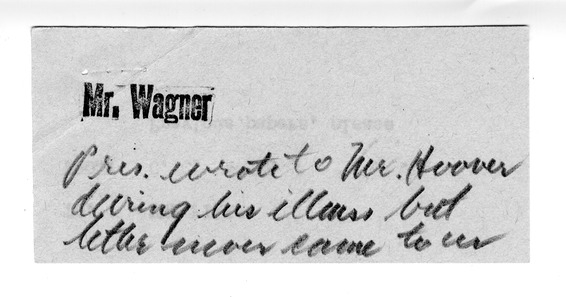 Mr. Wagner
Pres. wrote to Mr. Hoover
during his illness but
letter never came to us